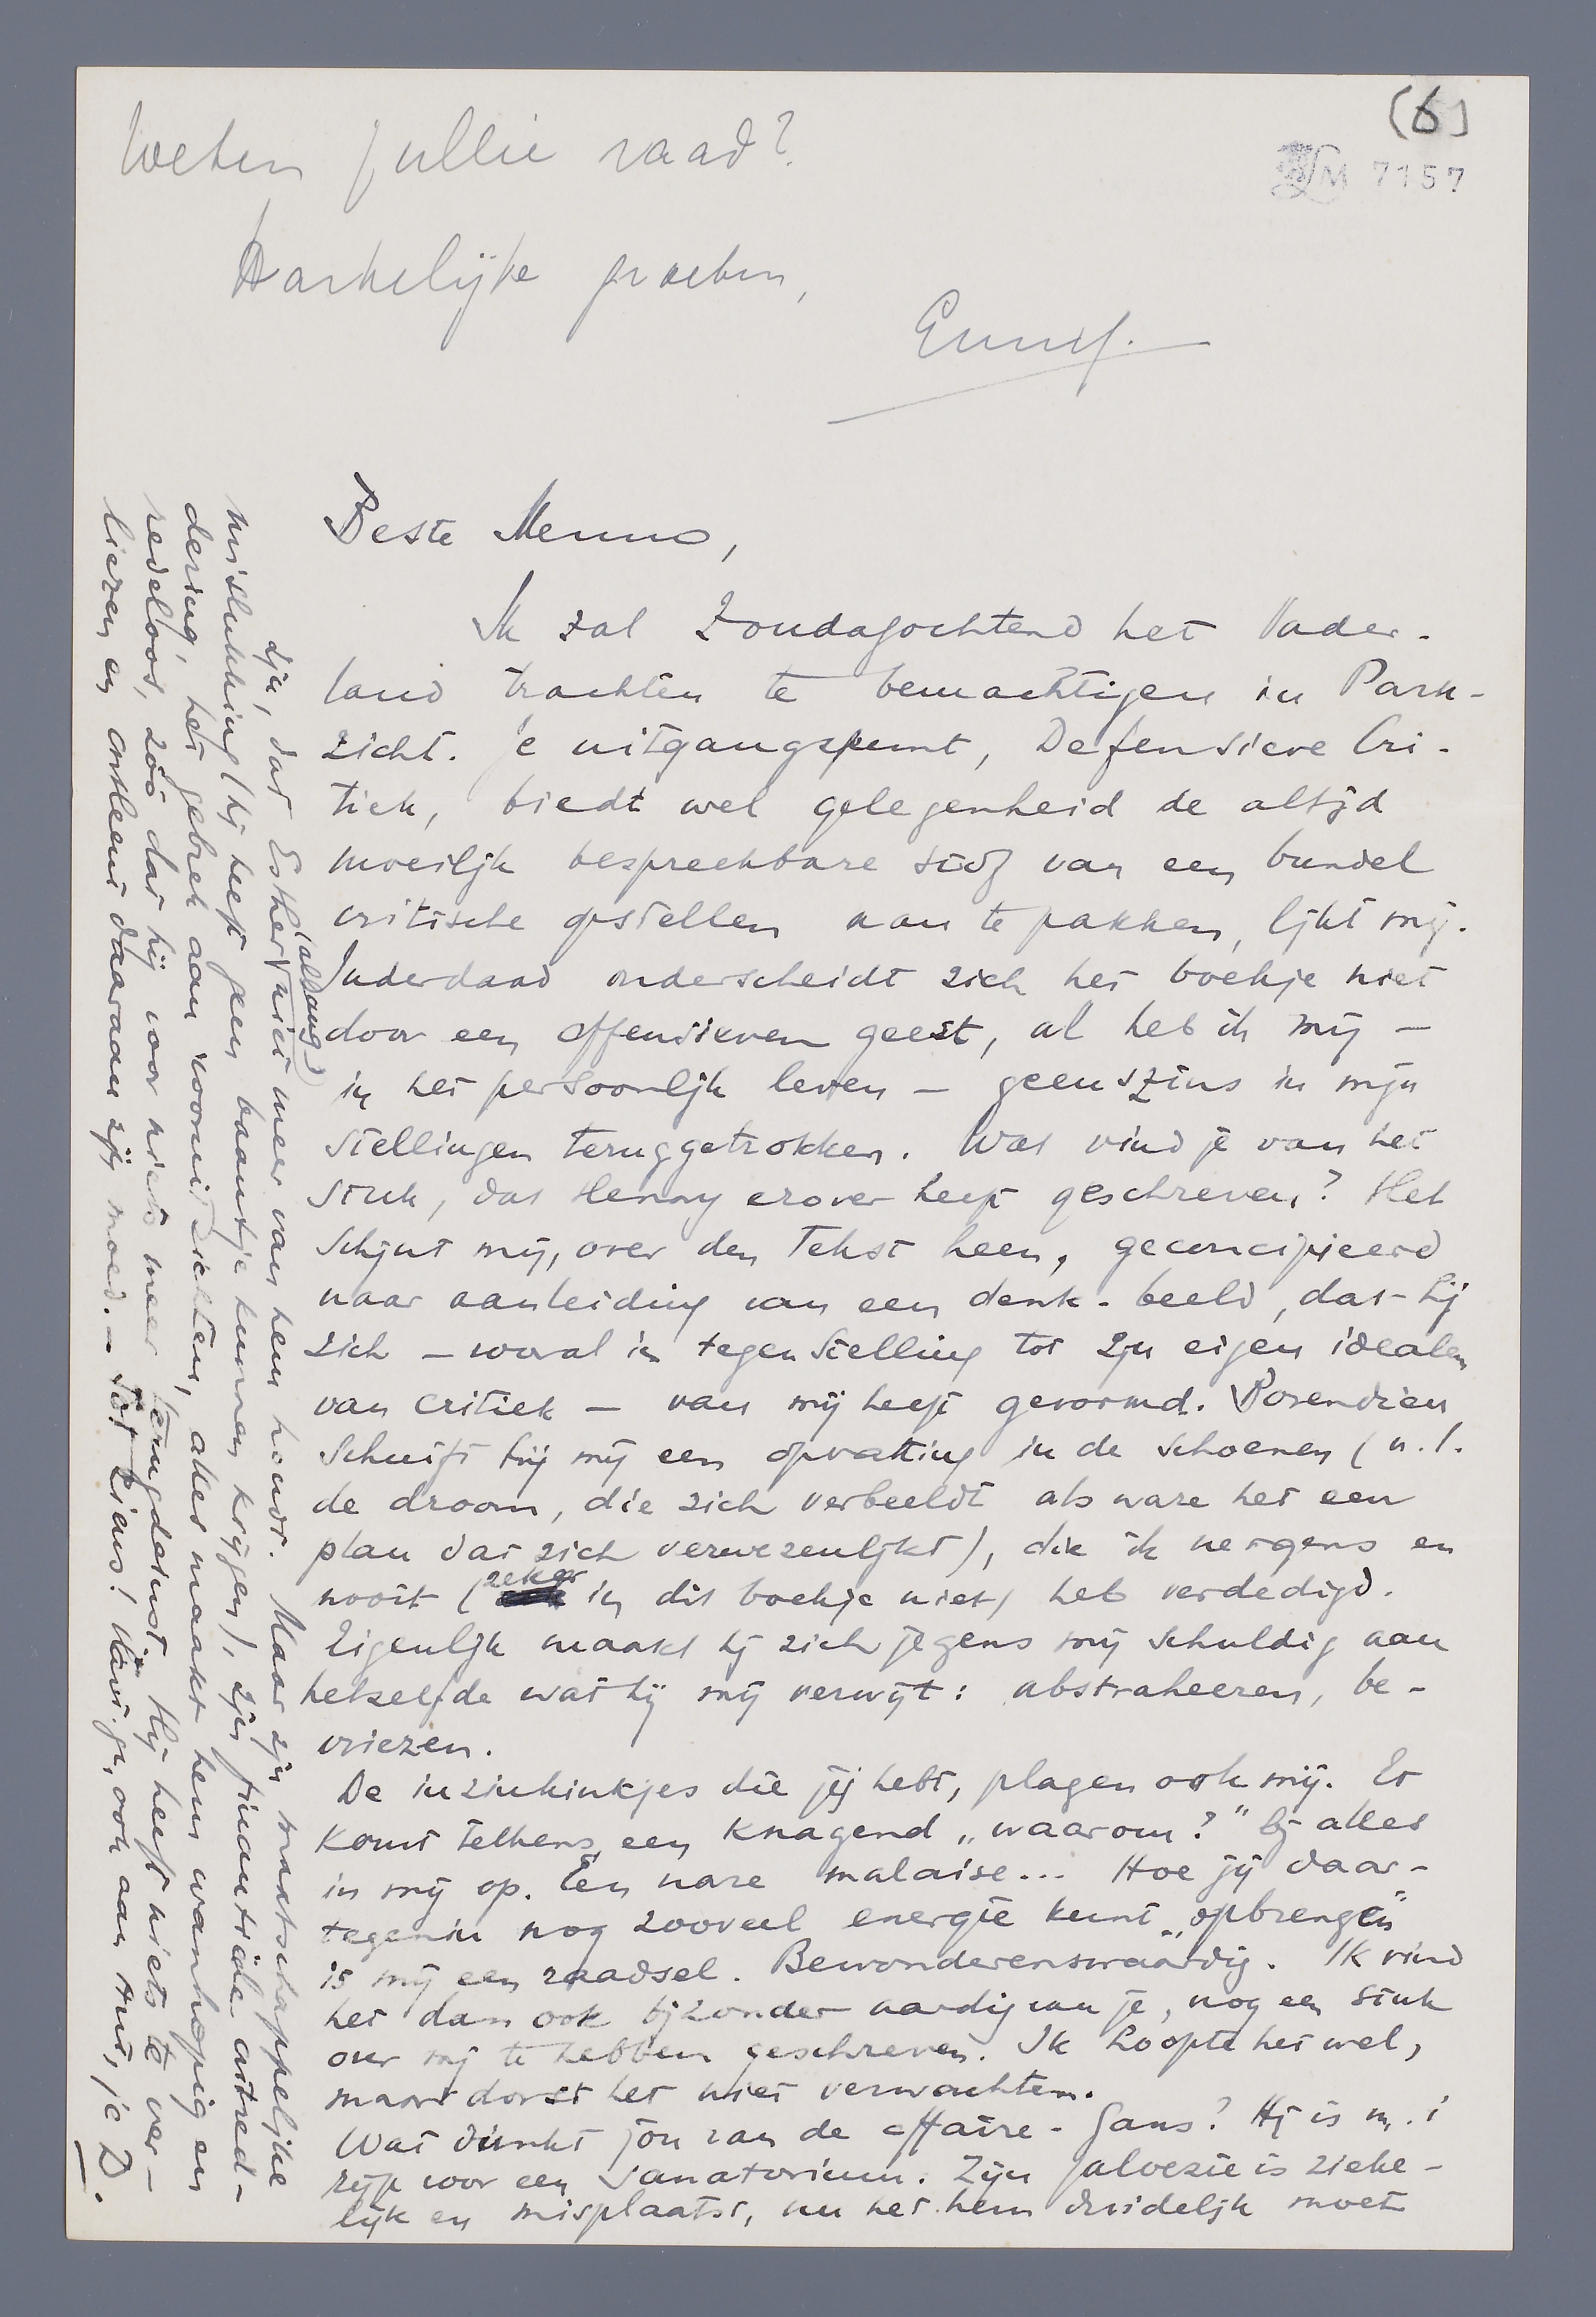 (6)
LM 7157
Weten jullie raad?
Hartelijke groeten,
Emmy.
Beste Menno,
Ik zal Zondagochtend het Vader-
land trachten te bemachtigen in Park-
zicht. Je uitgangspunt, Defensieve Cri-
tiek, biedt wel gelegenheid de altijd
moeilijk bespreekbare stof van een bundel
critische opstellen aan te pakken, lijkt mij.
Inderdaad onderscheidt zich het boekje niet
door een offensieven geest, al heb ik mij –
in het persoonlijk leven – geenszins in mijn
stellingen teruggetrokken. Wat vind je van het
stuk, dat Henny erover heeft geschreven? Het
schijnt mij, over den tekst heen, geconcipieerd
naar aanleiding van een denk-beeld, dat hij
zich – vooral in tegenstelling tot zijn eigen idealen
van critiek – van mij heeft gevormd. Bovendien
schuift hij mij een opvatting in de schoenen (n.l.
de droom, die zich verbeeldt als ware het een
plan dat zich verwezenlijkt), die ik nergens en
nooit (zeker in dit boekje niet) heb verdedigd.
Eigenlijk maakt hij zich jegens mij schuldig aan
hetzelfde wat hij mij verwijt: abstraheeren, be-
vriezen.
De inzinkinkjes die jij hebt, plagen ook mij. Er
komt telkens een knagend „waarom?" bij alles
in mij op. Een nare malaise... Hoe jij daar-
tegenin nog zooveel energie kunt „opbrengen"
is mij een raadsel. Bewonderenswaardig. Ik vind
het dan ook bijzonder aardig van je, nog een stuk
over mij te hebben geschreven. Ik hoopte het wel,
maar dorst het niet verwachten.
Wat dunkt jou van de affaire-Gans? Hij is m.i
rijp voor een sanatorium. Zijn jaloezie is zieke-
lijk en misplaatst, nu het hem duidelijk moet
zijn, dat Esther (allang) niet meer van hem houdt. Maar zijn maatschappelijke
mislukking (hij heeft geen baantje kunnen krijgen), zijn finantieele ontred-
dering, het gebrek aan vooruitzichten, alles maakt hem wanhopig en
redeloos, zóó dat hij voor niets meer terugdeinst. Hij heeft niets te ver-
liezen en ontleent daaraan zijn moed. – Tot ziens! Hart. gr., ook aan Ant, je D.